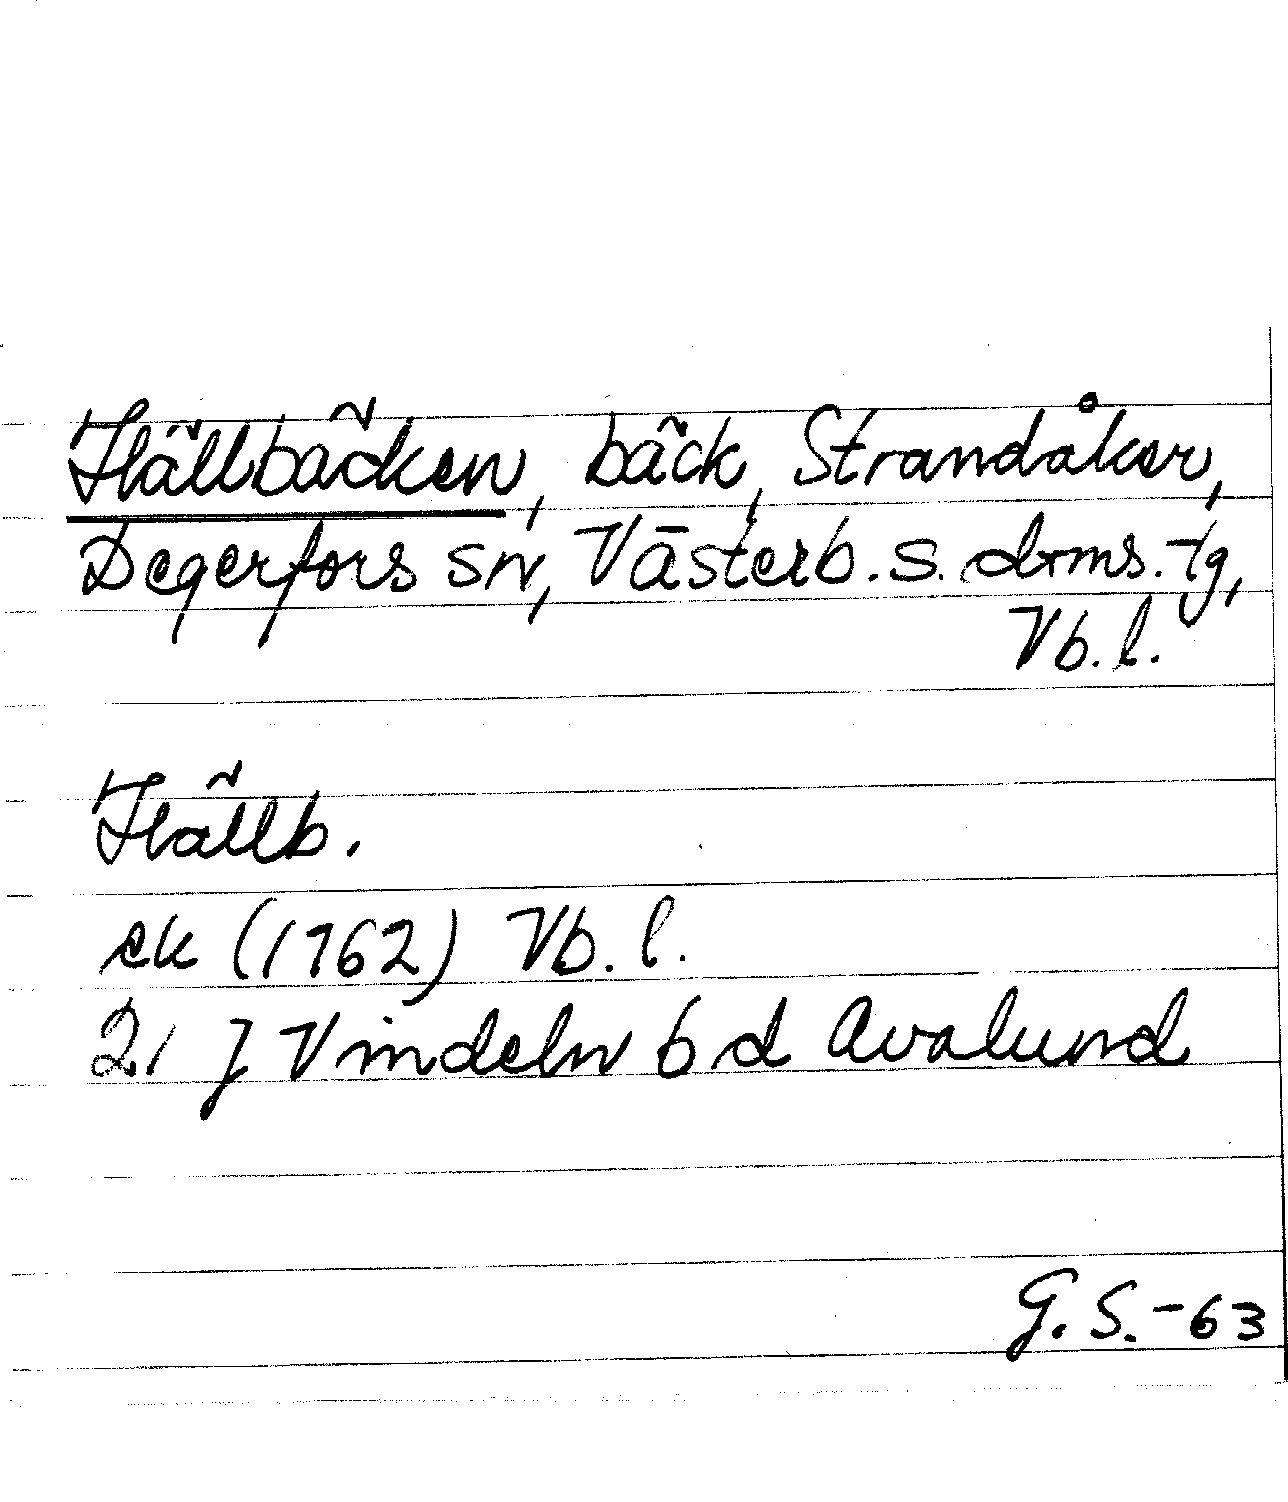 Hällbäcken, bäck, Strandåker,
Degerfors sn, Västerb. s. dms.-tg,
Vb. l.
Hällb.
ek (1962) Vb. l.
21 J Vindeln bd Avalund
G. S. -63